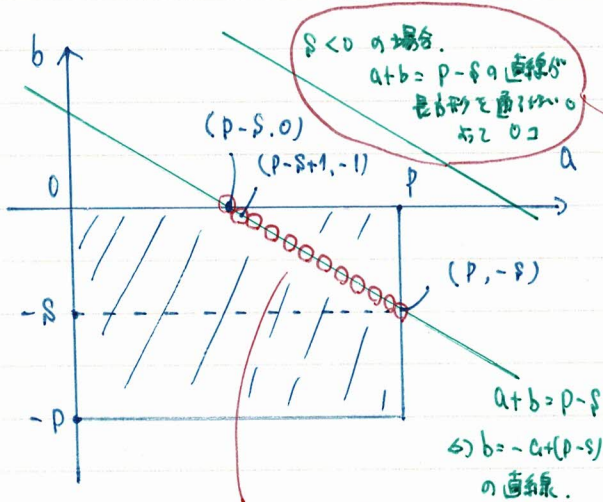 S<0 の場合.
a+b=P-Sの直線が
長方形を通らない。
よって 0コ
b
(P-S.0)
(P-S+1,-1)
a
0
P
(P,-S)
-S
-P
a+b=P-S
⇔ b=-a+(P-S)
の直線.